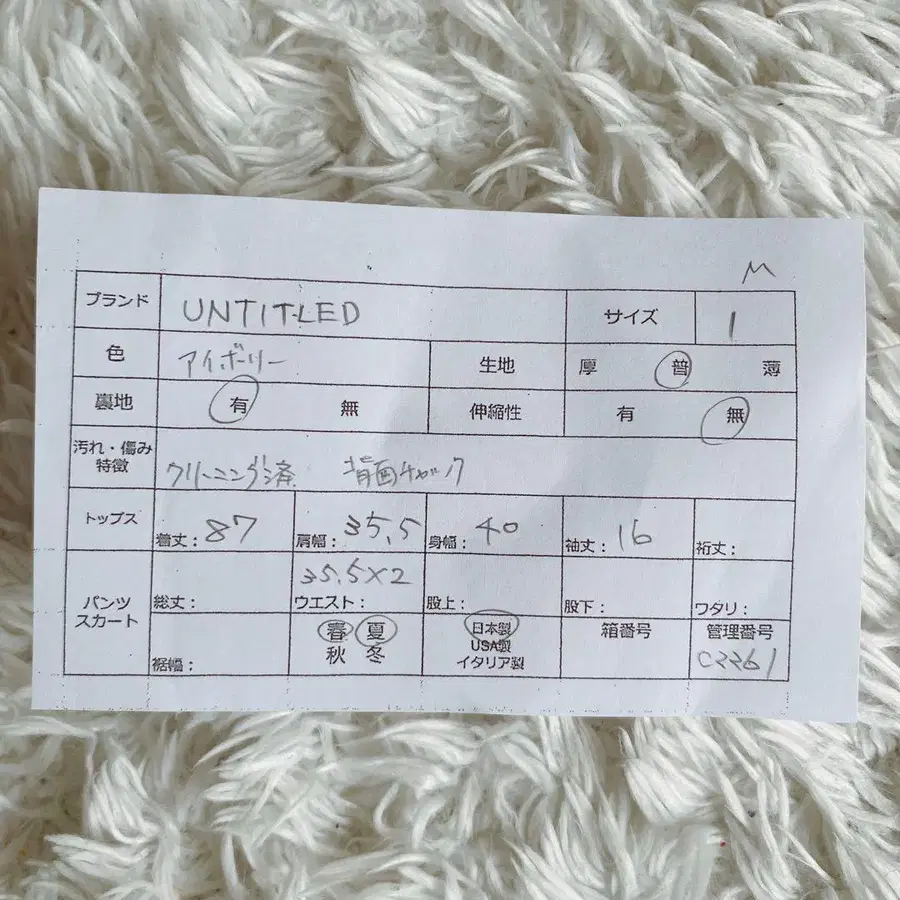 M
ブランド UNTITLED サイズ 1
色 アイボリー 生地 厚 普 薄
裏地 有 無 伸縮性 有 無
汚れ・傷み
特徴 クリーニング済 背面チャック
トップス 着丈：87 肩幅：35.5 身幅：40 袖丈：16 裄丈：
パンツ
スカート
総丈： 35.5×2 ウエスト： 股上： 股下： ワタリ：
裾幅： 春 夏
秋 冬
日本製
USA製
イタリア製
箱番号
管理番号
C2261